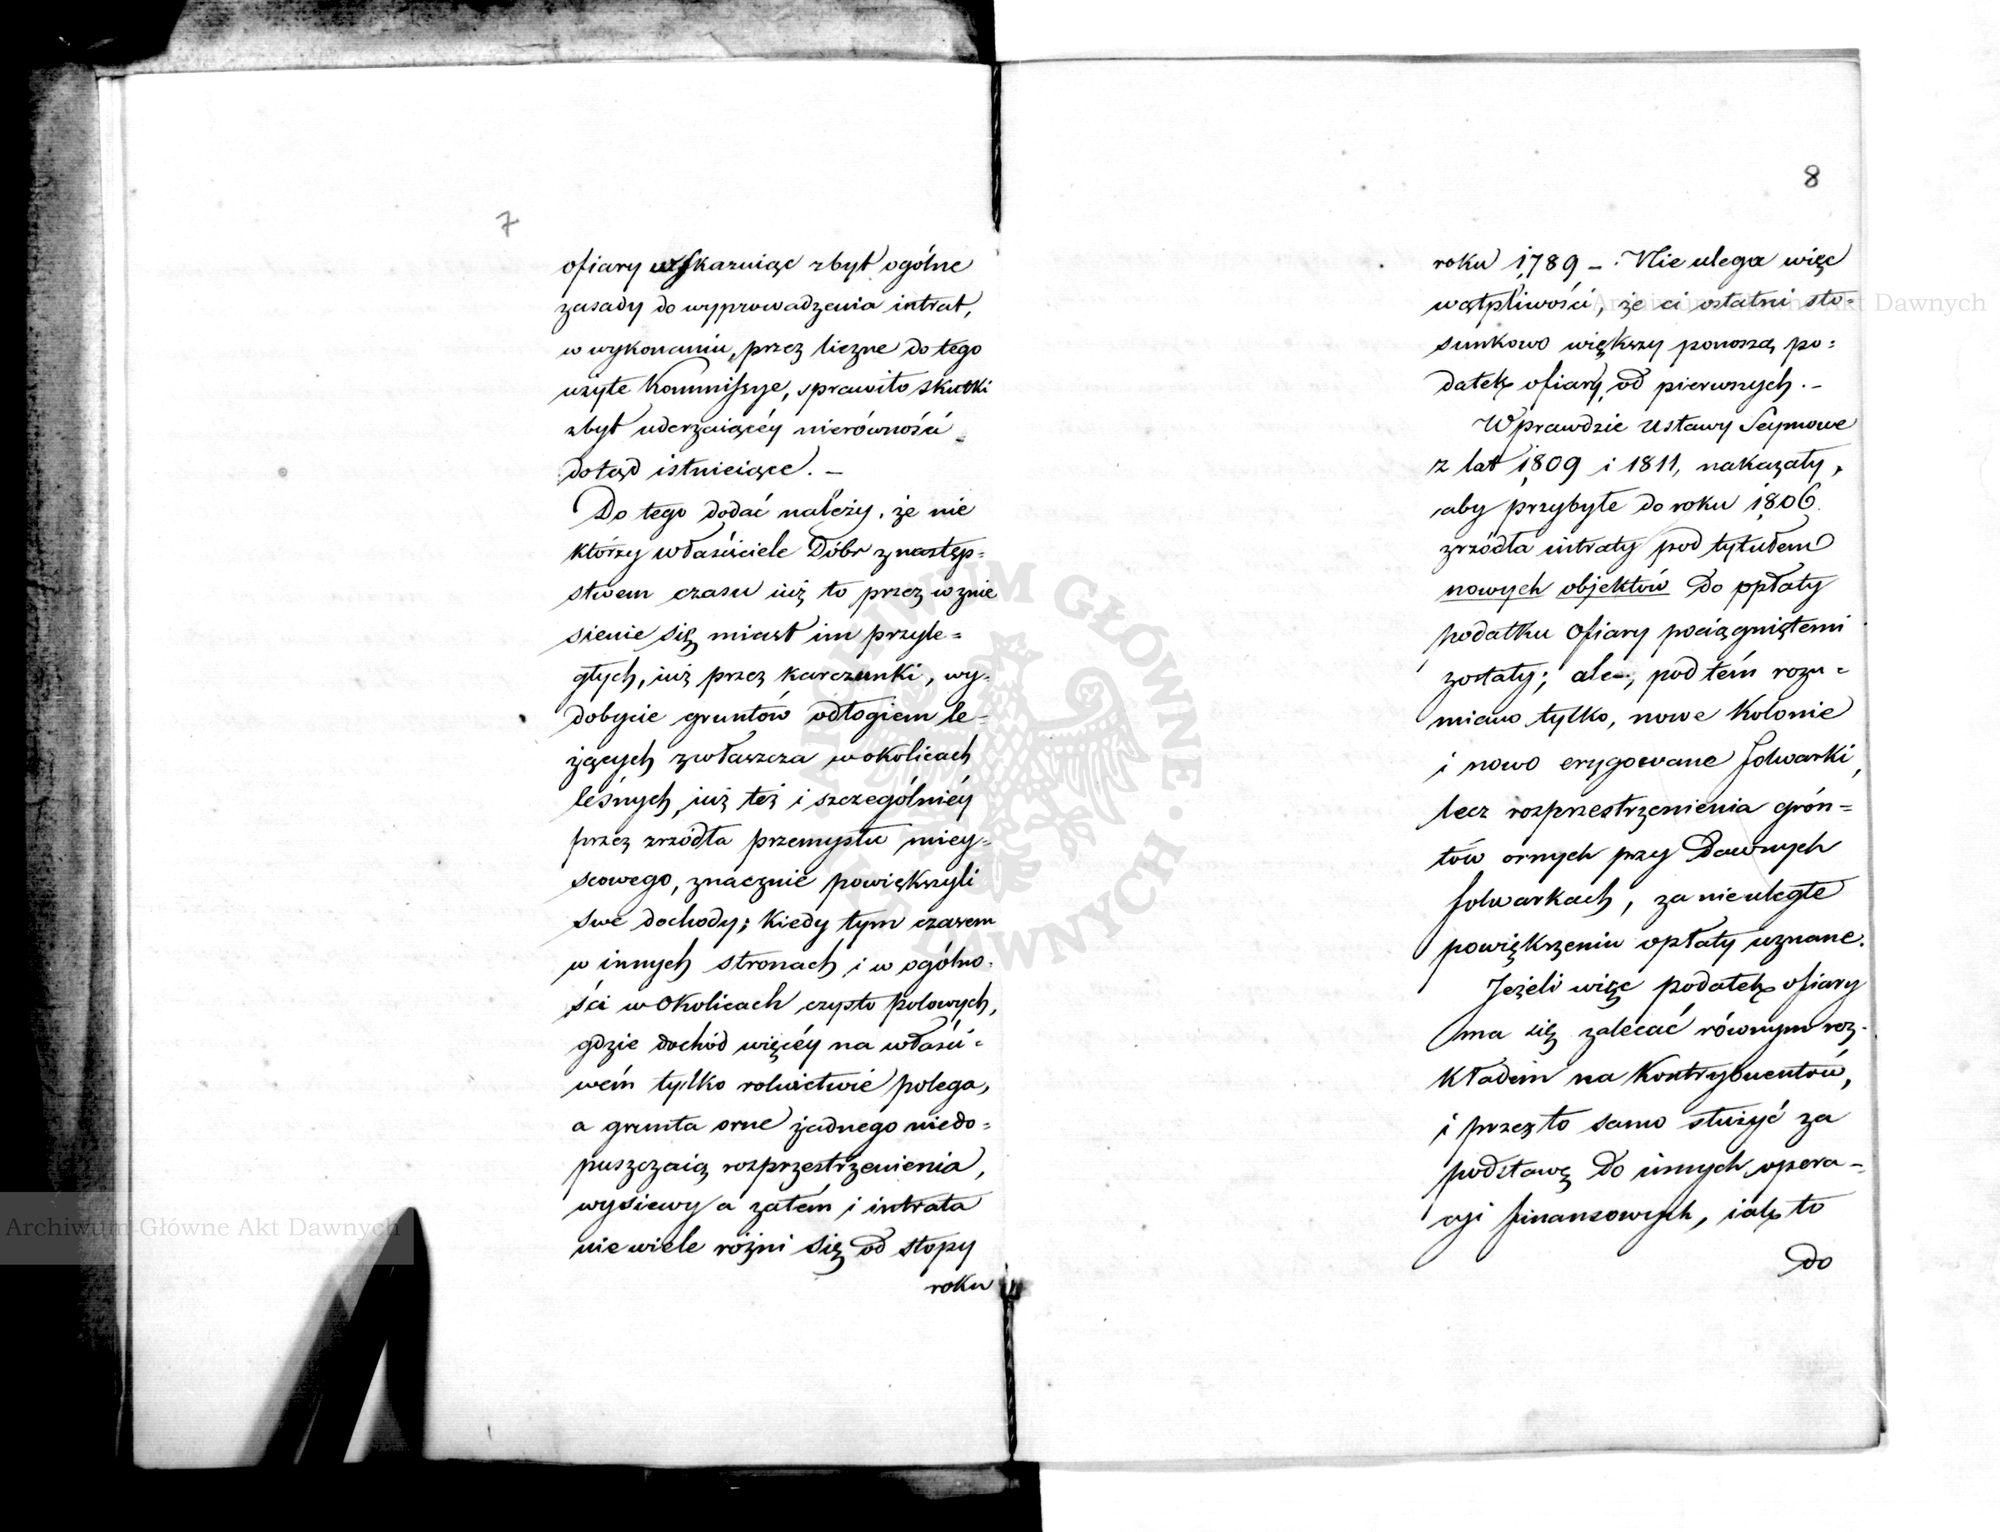 7
ofiary wskazuiąc zbyt ogólne
zasady do wyprowadzenia intrat,
w wykonaniu, przez liczne do tego
użyte Kommissye, sprawiło skutki
zbyt uderzaiącéy nierówności
dotąd istnieiące. –
Do tego dodać należy, że nie
którzy właściciele Dóbr z następ=
stwem czasu iuż to przez wznie
sienie się miast im przyle=
głych, iuż przez karczunki, wy=
dobycie gruntów odłogiem le=
żących zwłaszcza w okolicach
leśnych, iuż też i szczególniéy
przez zrzódła przemysłu miey=
scowego, znacznie powiększyli
swe dochody; kiedy tym czasem
w innych stronach i w ogólno=
ści w okolicach czysto polowych,
gdzie dochód więcéy na właści=
wém tylko rolnictwie polega,
a grunta orne żadnego niedo=
puszczaią rozprzestrzenienia,
wysiewy a zatém i intrata
nie wiele różni się od stopy
roku
8
roku 1789 –. Nie ulega więc
wątpliwości, że ci ostatni sto=
sunkowo większy ponoszą po=
datek ofiary od pierwszych. –
Wprawdzie Ustawy Seymowe
z lat 1809 i 1811, nakazały,
aby przybyłe do roku 1806.
zrzódła intraty pod tytułem
nowych objektów do opłaty
podatku Ofiary pociągniętemi
zostały; ale, pod tém rozu=
miano tylko, nowe Kolonie
i nowo erygowane folwarki,
lecz rozprzestrzenienia grón=
tów ornych przy Dawnych
folwarkach, za nieuległe
powiększeniu opłaty uznane.
Jeżeli więc podatek ofiary
ma się zalecać równym roz=
kładem na Kontrybuentów,
i przez to samo służyć za
podstawę do innych opera=
cyi finansowych, iak to
do
Archiwum Główne Akt Dawnych
Archiwum Główne Akt Dawnych
ARCHIWUM GŁÓWNE AKT DAWNYCH